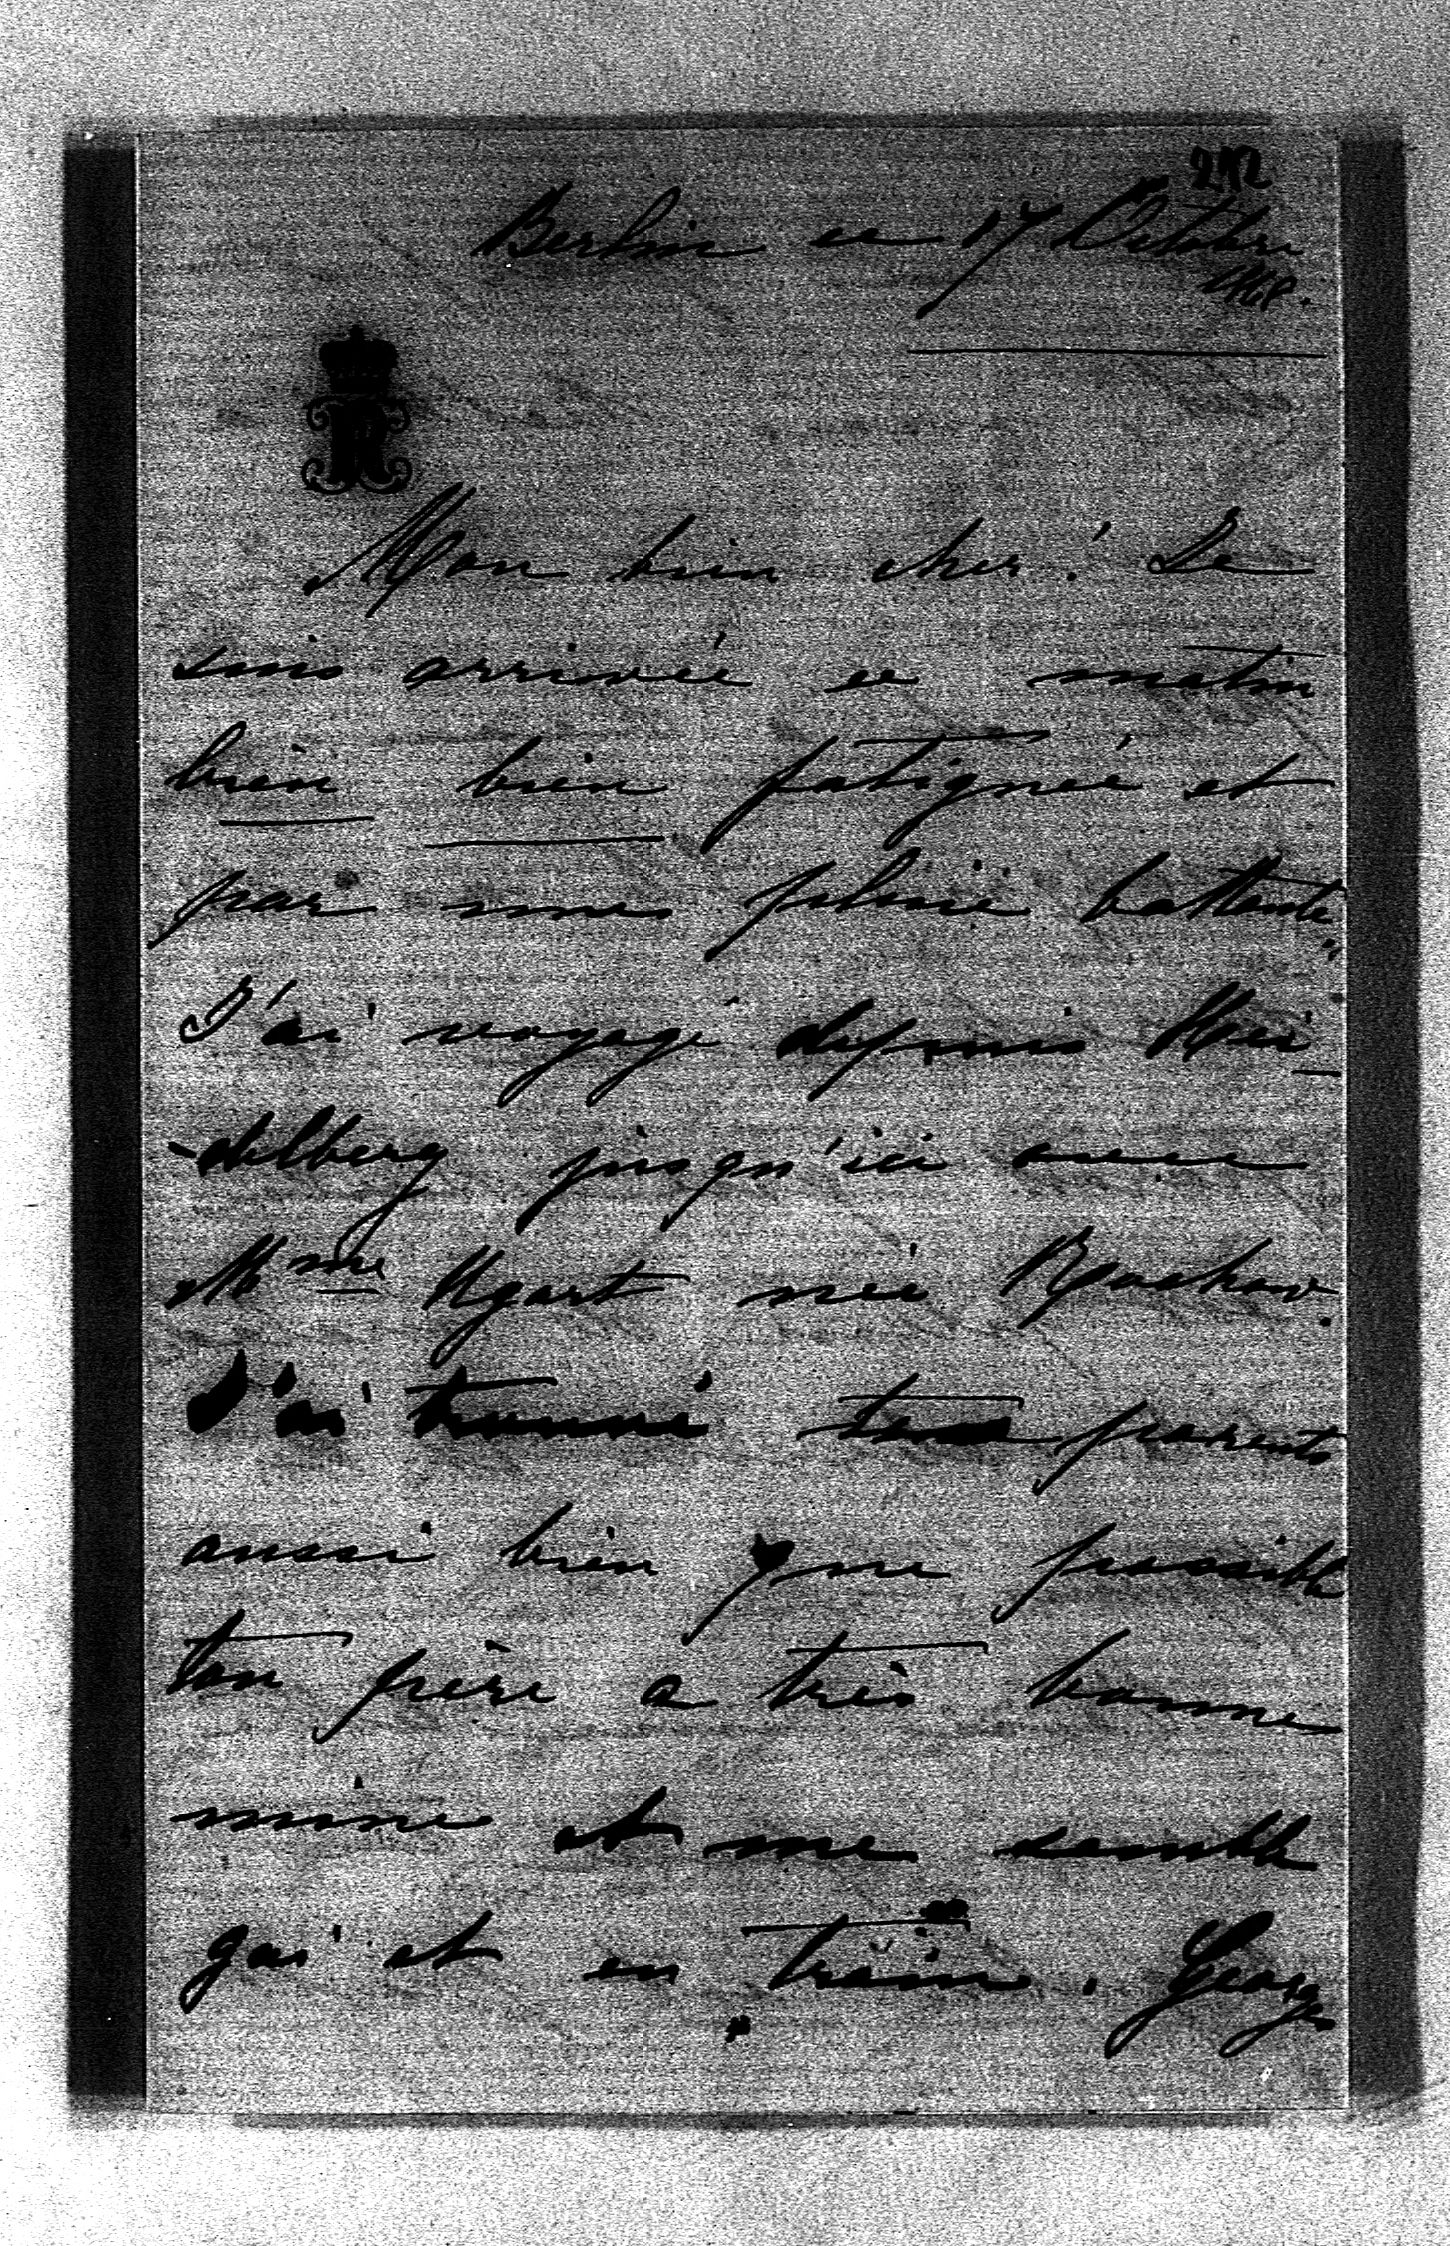 212
Berlin ce 17 Octobre
1868.
R
Mon bien cher! Je
suis arrivée ce matin
bien bien fatiguée et
par une pluie battante.
J'ai voyagé depuis Hei-
-delberg jusqu'ici avec
Mme Ugart née Rochow.
J'ai trouvé tes parents
aussi bien que possible
ton père a très bonne
mine et me semble
gai et en train. Georges